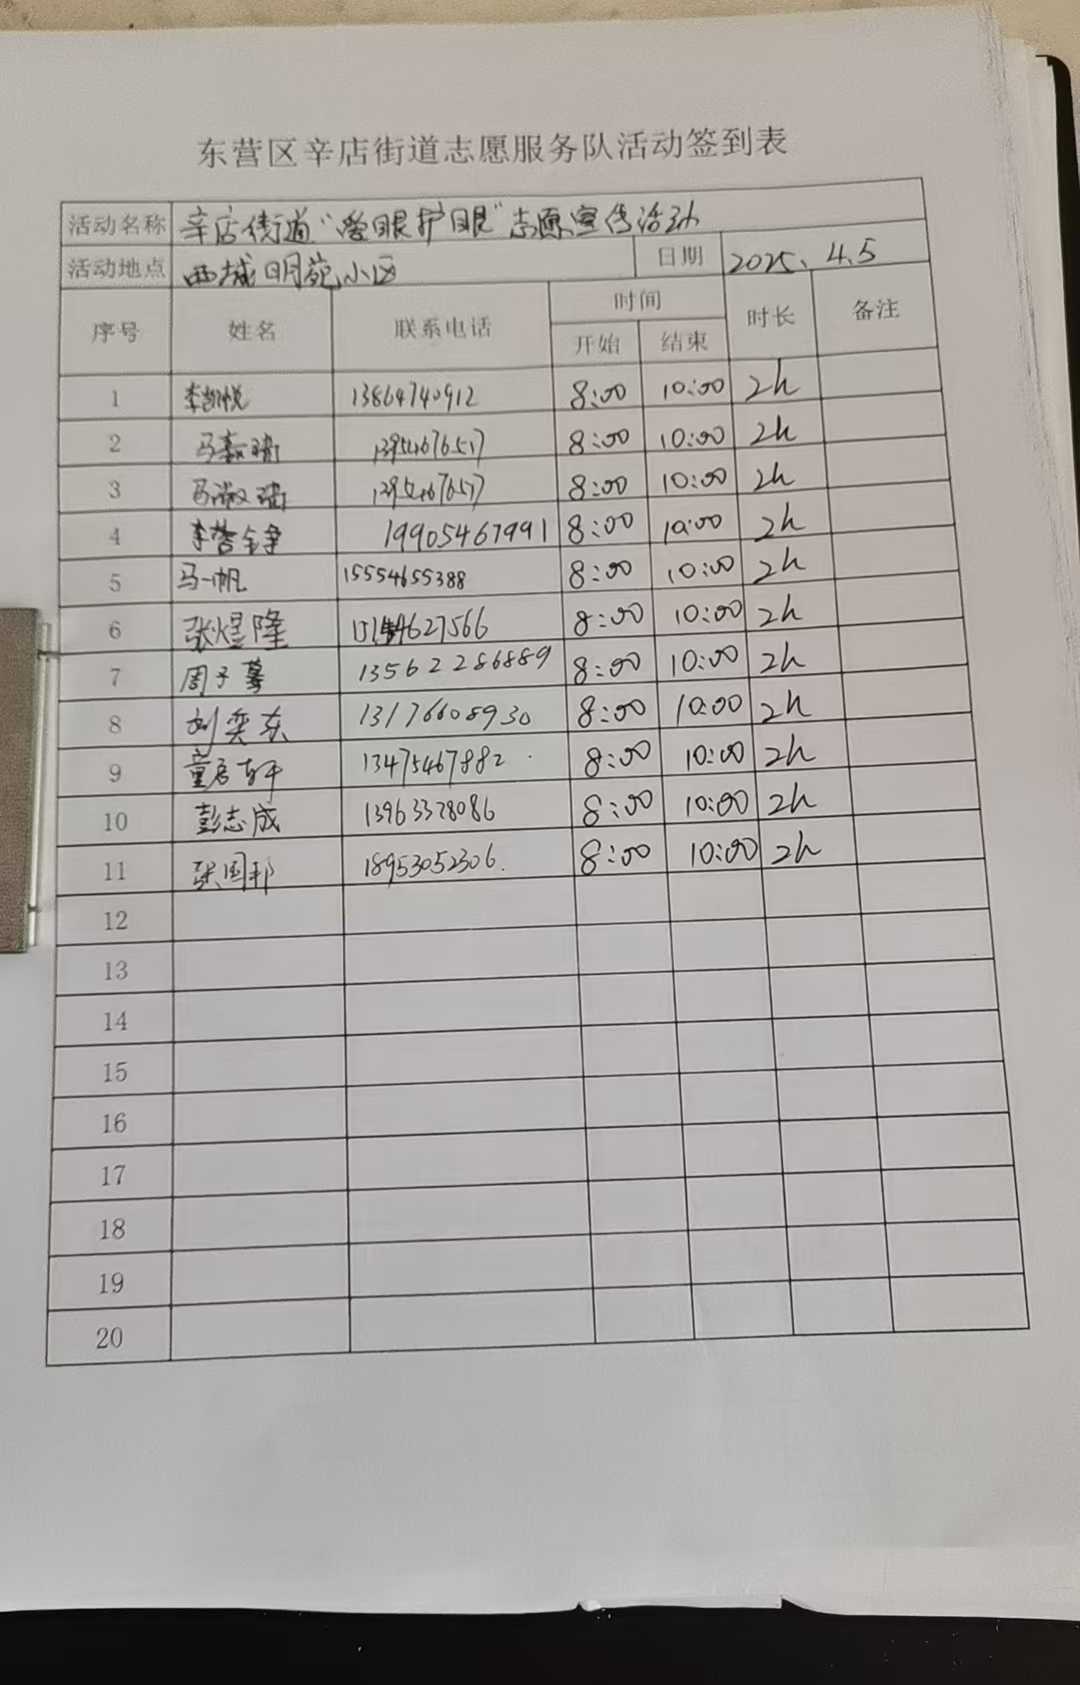 东营区辛店街道志愿服务队活动签到表
活动名称 辛店街道“爱眼护眼”志愿宣传活动
活动地点 西城明苑小区 日期 2025.4.5
序号 姓名 联系电话 时间 时长 备注
开始 结束
1 李凯悦 13864740912 8:00 10:00 2h
2 马 13954676517 8:00 10:00 2h
3 马淑 13954676517 8:00 10:00 2h
4 李 19905467991 8:00 10:00 2h
5 马一帆 15554655388 8:00 10:00 2h
6 张煜隆 8:00 10:00 2h
7 周子 13562286889 8:00 10:00 2h
8 刘奕东 13176608930 8:00 10:00 2h
9 童启轩 13475467882 8:00 10:00 2h
10 彭志成 13963378086 8:00 10:00 2h
11 张国邦 18953052306. 8:00 10:00 2h
12
13
14
15
16
17
18
19
20